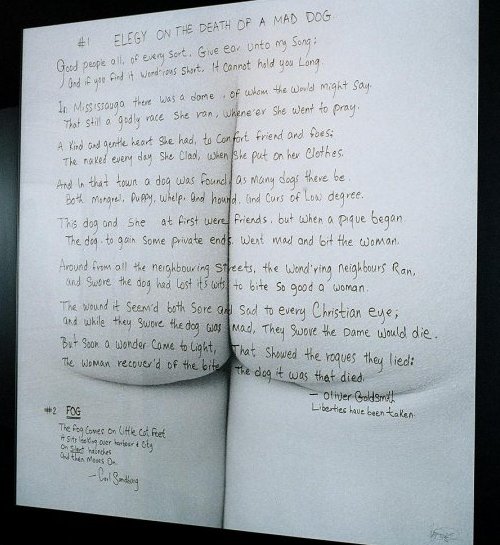 #1 ELEGY ON THE DEATH OF A MAD DOG
Good people all, of every sort, Give ear unto my song;
And if you find it wond'rous short, It cannot hold you Long.
In Mississauga there was a dame, of whom the world might say.
That still a godly race She ran, whene'er She went to pray.
A kind and gentle heart She had, to Comfort friend and foes;
The naked every day She Clad, when She put on her Clothes.
And In that town a dog was found, as many dogs there be,
Both mongrel, puppy, whelp, and hound, and Curs of Low degree.
This dog and She at first were friends, but when a pique began
The dog, to gain Some private ends, went mad and bit the woman.
Around from all the neighbouring Streets, the wond'ring neighbours Ran,
and Swore the dog had Lost its wits, to bite So good a woman.
The wound it Seem'd both Sore and Sad to every Christian eye;
and while they Swore the dog was mad, They Swore the Dame would die.
But Soon a wonder Came to Light, That Showed the rogues they lied:
The woman recover'd of the bite, The dog it was that died.
- Oliver Goldsmith
Liberties have been taken.
#2 FOG
The fog comes on Little Cat Feet
It sits Looking over harbour & City
On Silent haunches
and then Moves On.
- Carl Sandburg